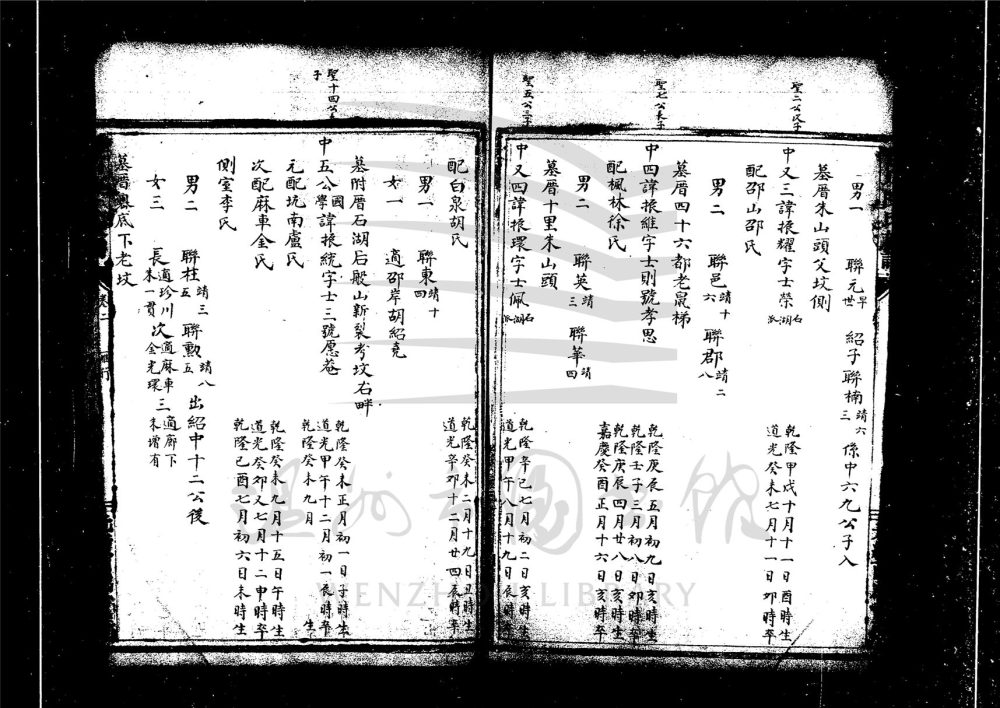 聖二公次子
聖七公長子
聖五公三子
男一 聯元早世 紹子聯楠靖六三 係中六九公子入
墓厝朱山頭父坟側
中又三諱振耀字士榮石湖派 乾隆甲戌十月十一日酉時生 道光癸未七月十一日卯時卒
配邵山邵氏
男二 聯邑靖十六 聯郡靖二八
墓厝四十六都老鼠梯
中四諱振維字士則號孝思 乾隆庚辰五月初九日亥時生 乾隆壬子三月初八日卯時卒
配楓林徐氏 乾隆庚辰四月廿八日亥時生 嘉慶癸酉正月十六日亥時卒
男二 聯英靖三 聯華靖四
墓厝十里朱山頭
中又四諱振環字士佩石湖派 乾隆辛巳七月初二日亥時生 道光甲午八月十九日辰時卒
聖十四公長子
配白泉胡氏 乾隆癸未二月十九日丑時生 道光辛卯十二月廿四辰時卒
男一 聯東靖十四
女一 適邵岸胡紹堯
墓附厝石湖后殿山新裂考坟右畔
中五公國學諱振統字士三號愿菴 乾隆癸未正月初一日子時生 道光甲午十二月初一辰時卒
元配坑南盧氏 乾隆癸未九月 生
次配麻車金氏 乾隆癸未九月十五日午時生 道光癸卯又七月十二申時卒
側室李氏 乾隆己酉七月初六日未時生
男二 聯桂靖三五 聯勲靖八五 出紹中十二公後
女三 長適珍川朱一貫 次適麻車金光環 三適廊下朱增有
墓厝 底下老坟
卷二
WENZHOU LIBRARY